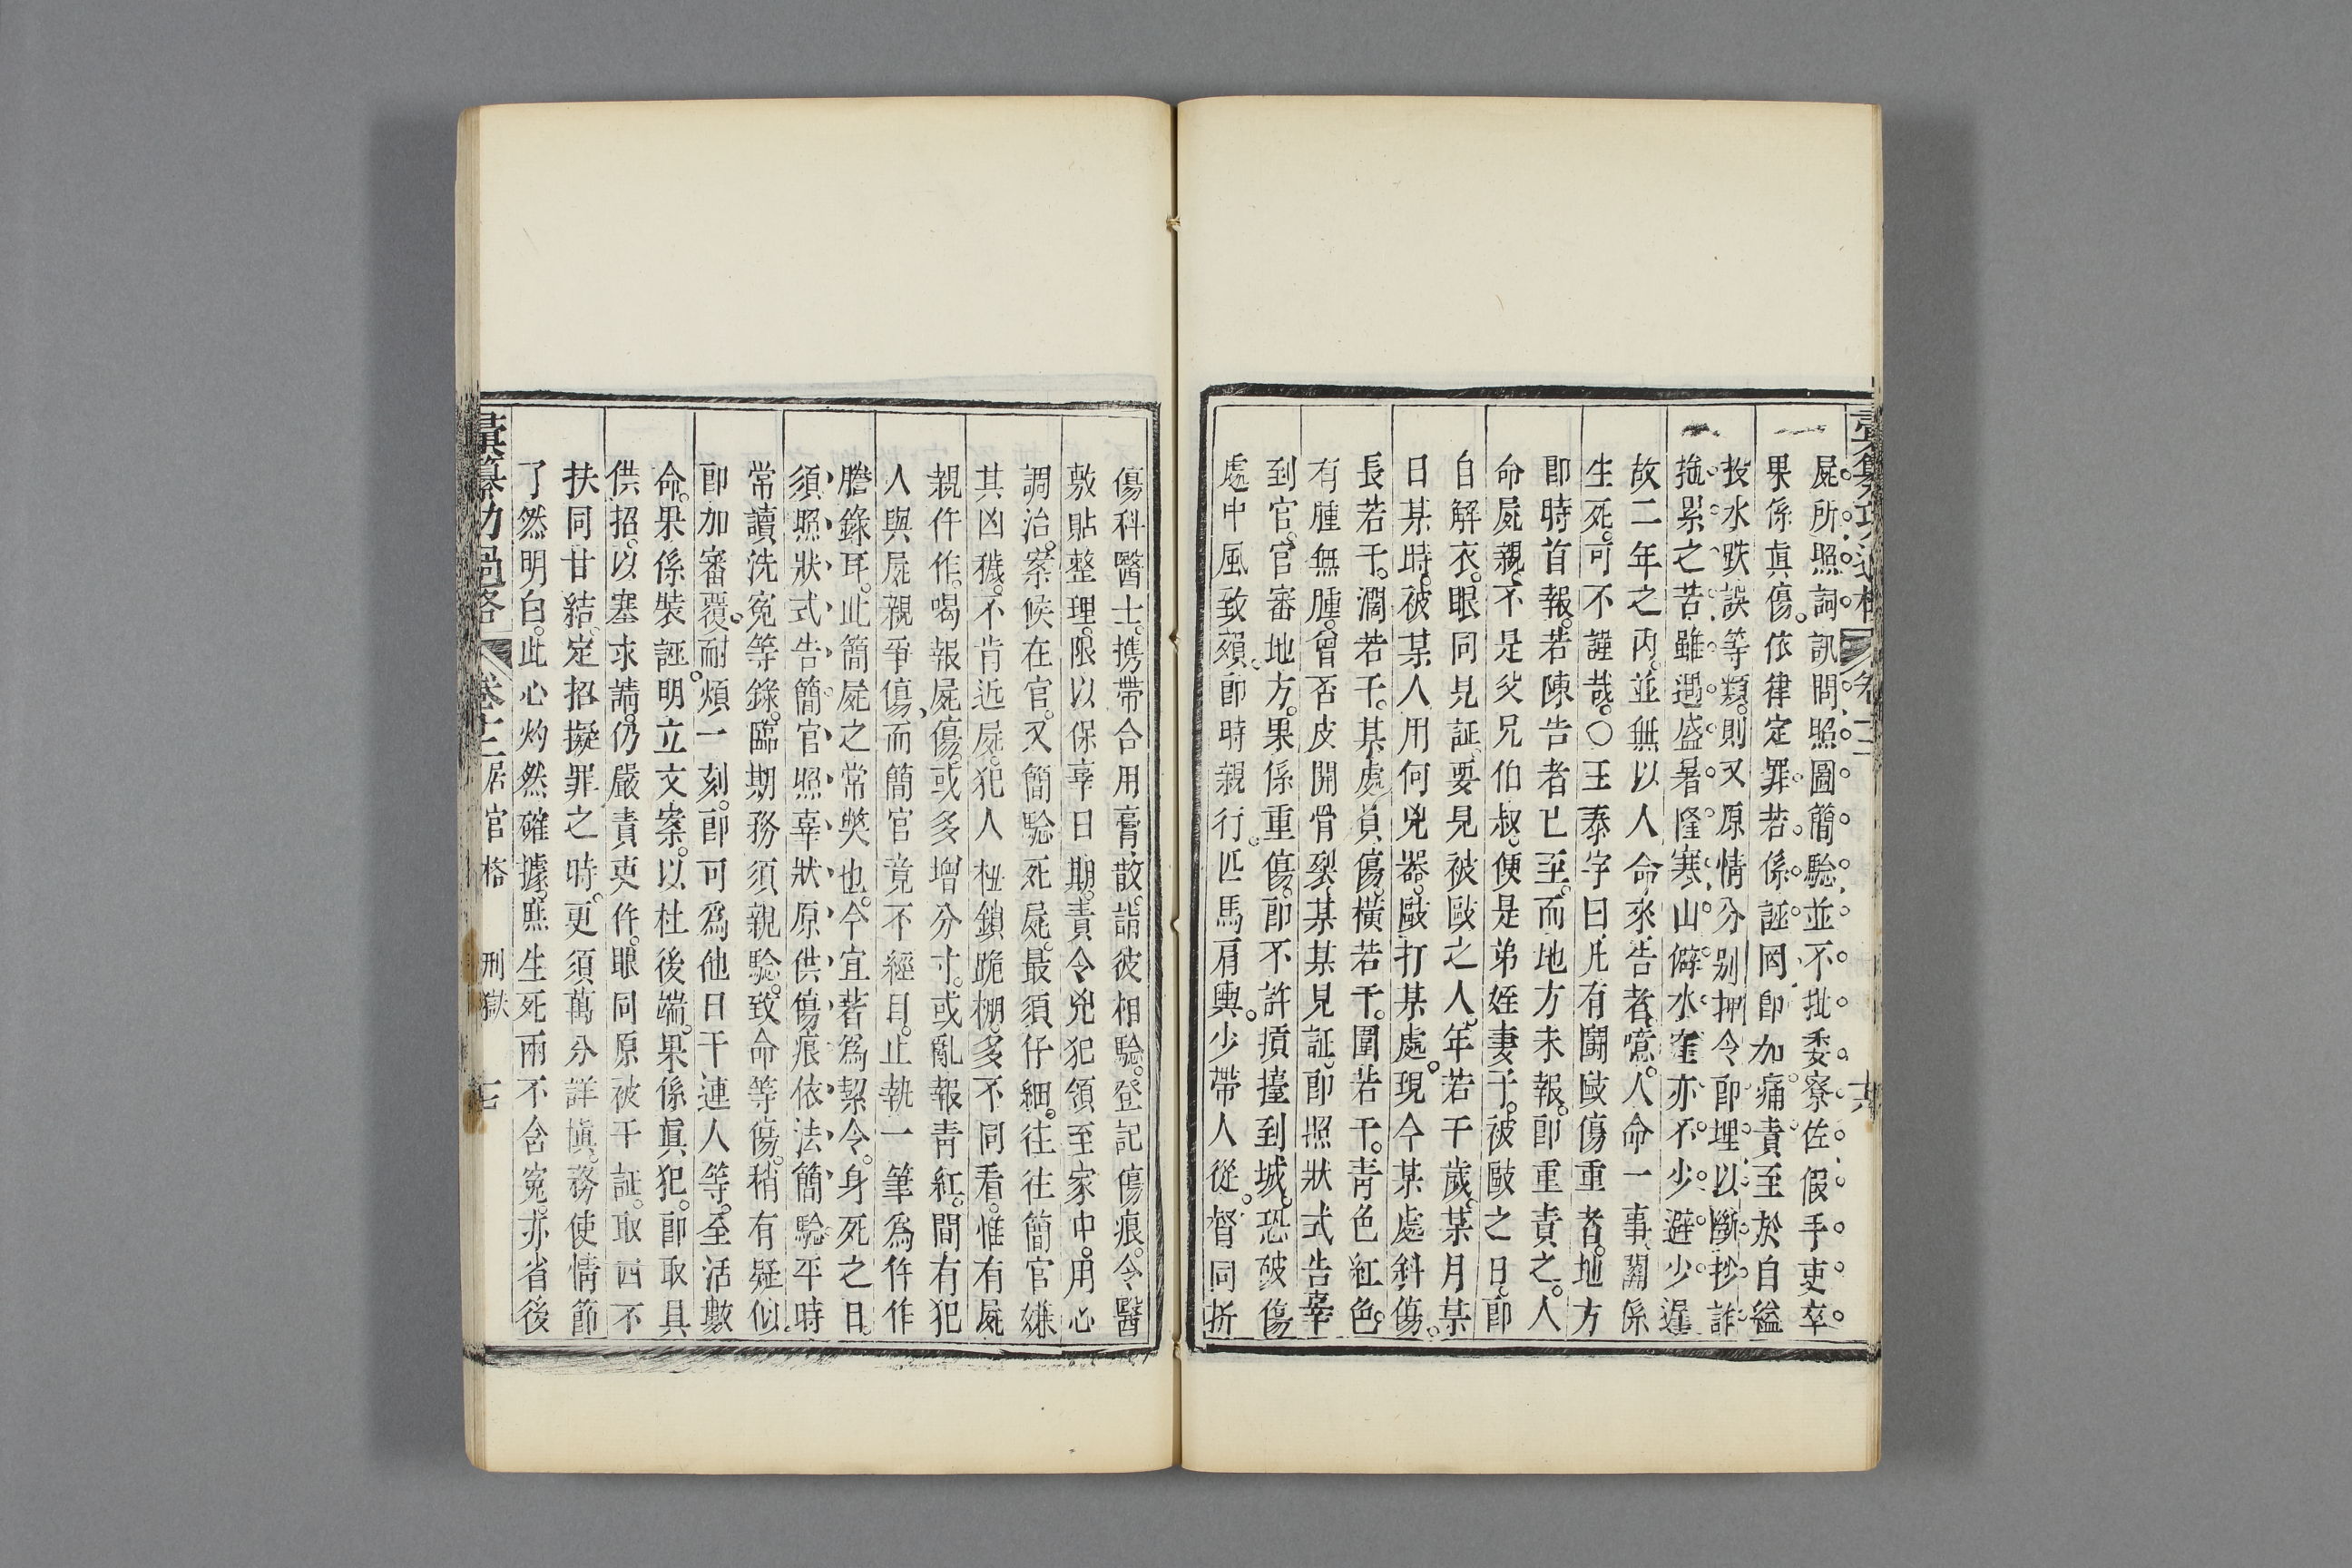 彙纂功過格 卷十二 十六
屍所照詞訊問照圖簡騐並不批委寮佐假手吏卒
果係眞傷依律定罪若係誣罔卽加痛責至於自縊
投水跌誤等類則又原情分别押令卽埋以斷抄詐
拖累之苦雖遇盛暑隆寒山僻水窪亦不少避少遲
故二年之內並無以人命來告者噫人命一事關係
生死可不謹哉○王泰宇曰凡有鬭毆傷重者地方
卽時首報若陳告者已至而地方未報卽重責之人
命屍親不是父兄伯叔便是弟姪妻子被毆之日卽
自解衣眼同見証要見被毆之人年若干歲某月某
日某時被某人用何兇器毆打某處現今某處斜傷
長若干濶若干某處員傷橫若干圍若干靑色紅色
有腫無腫曾否皮開骨裂某某見証卽照狀式告辜
到官官審地方果係重傷卽不許擡到城恐破傷
處中風致殞卽時親行匹馬肩輿少帶人從督同折
傷科醫士携帶合用膏散詣彼相騐登記傷痕令醫
敷貼整理限以保辜日期責令兇犯領至家中用心
調治案候在官又簡騐死屍最須仔細往往簡官嫌
其凶穢不肯近屍犯人杻鎖跪棚多不同看惟有屍
親仵作喝報屍傷或多增分寸或亂報靑紅間有犯
人與屍親爭傷而簡官竟不經目止執一筆爲仵作
謄錄耳此簡屍之常獘也今宜著爲絜令身死之日
須照狀式告簡官照辜狀原供傷痕依法簡騐平時
常讀洗寃等錄臨期務須親騐致命等傷稍有疑似
卽加審覆耐煩一刻卽可爲他日干連人等至活數
命果係裝誣明立文案以杜後端果係眞犯卽取具
供招以塞求請仍嚴責吏仵眼同原被干証取四不
扶同甘結定招擬罪之時更須萬分詳愼務使情節
了然明白此心灼然確據庶生死兩不含寃亦省後
彙纂功過格 卷十二 居官格 刑獄 十七